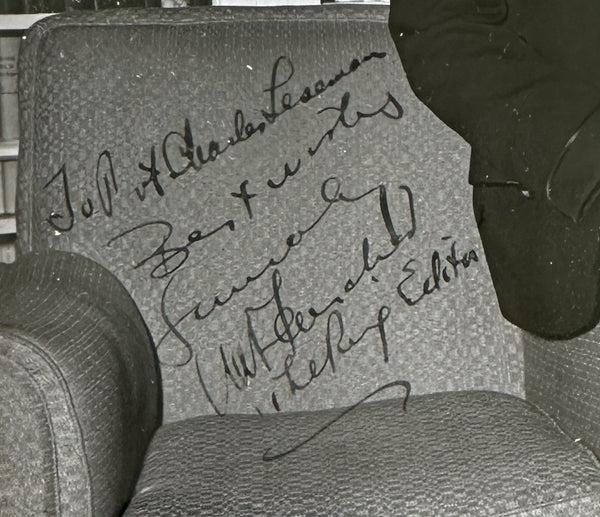 To P A Charles Leseman
Best wishes
Sincerely
Nat Fleischer
The Ring Editor